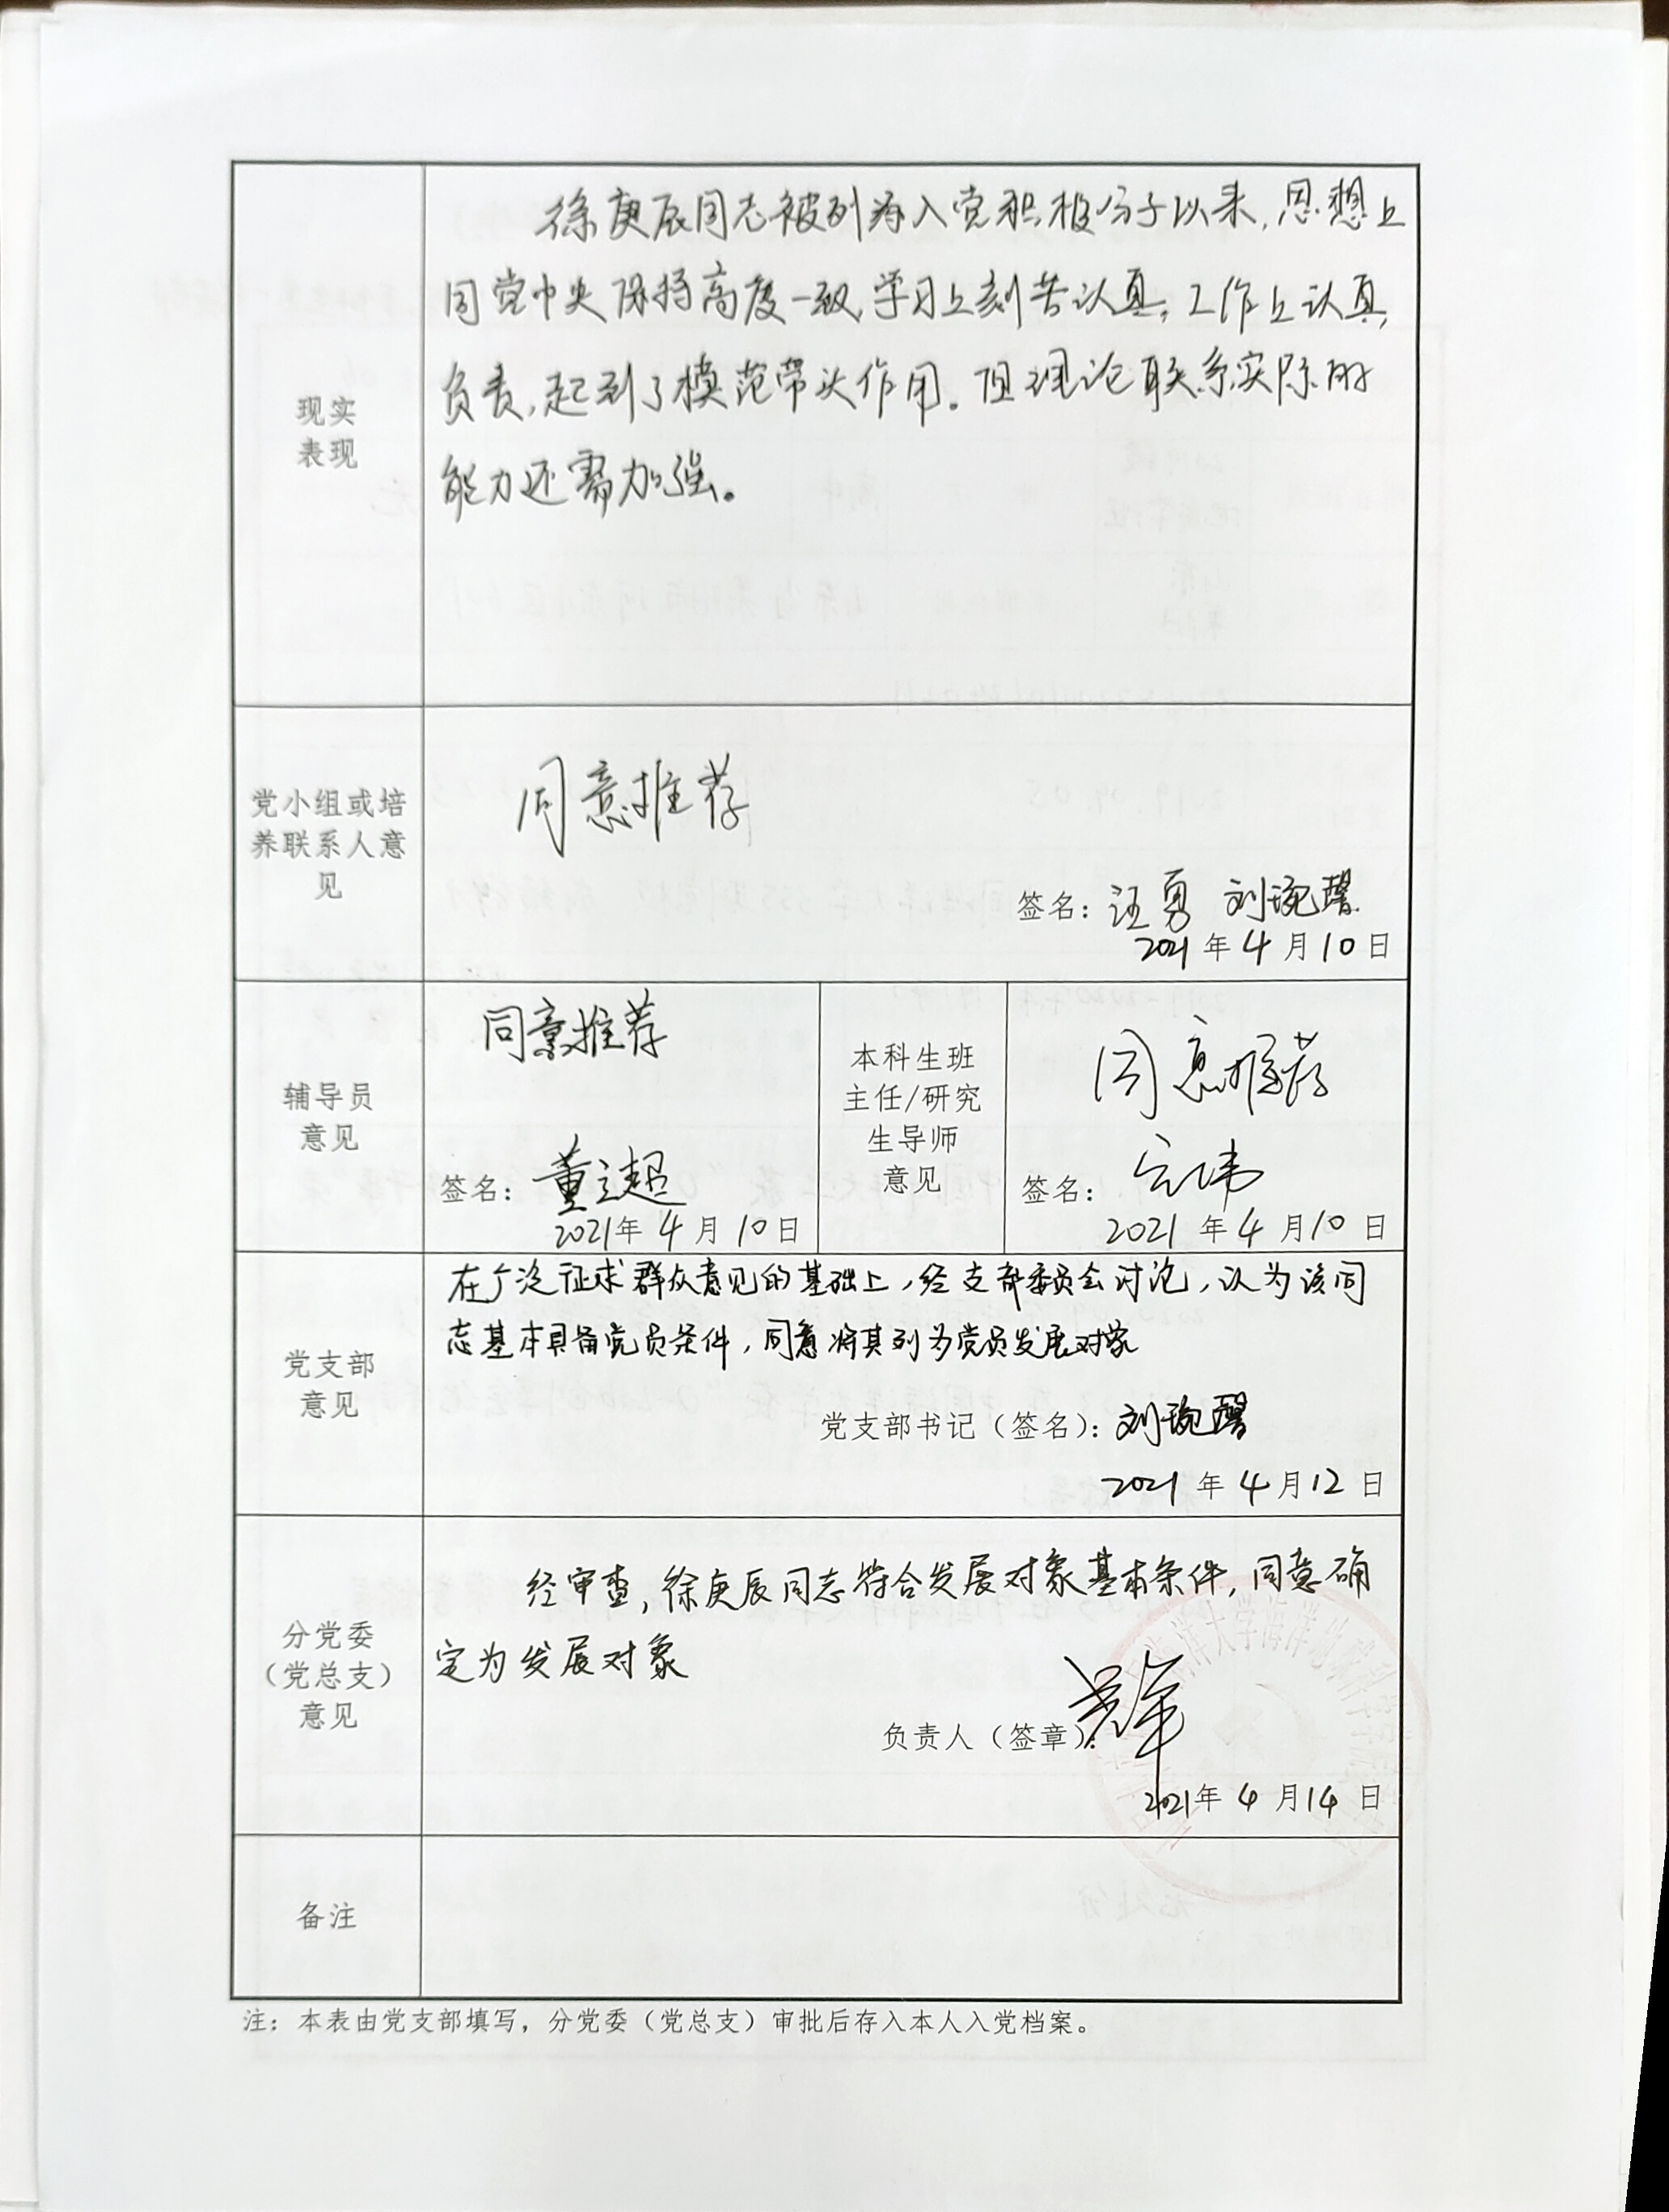 徐庚辰同志被列为入党积极分子以来,思想上
同党中央保持高度一致,学习上刻苦认真,工作上认真
负责,起到了模范带头作用。但理论联系实际的
能力还需加强。
现实
表现
同意推荐
党小组或培
养联系人意
见
签名:汪勇 刘琬馨
2021年4月10日
同意推荐
辅导员
意见
签名:董超
2021年4月10日
本科生班
主任/研究
生导师
意见
同意推荐
签名:
2021年4月10日
在广泛征求群众意见的基础上,经支部委员会讨论,认为该同
志基本具备党员条件,同意将其列为党员发展对象
党支部
意见
党支部书记(签名):刘琬馨
2021年4月12日
经审查,徐庚辰同志符合发展对象基本条件,同意确
定为发展对象
分党委
(党总支)
意见
负责人(签章):
2021年4月14日
备注
注:本表由党支部填写,分党委(党总支)审批后存入本人入党档案。